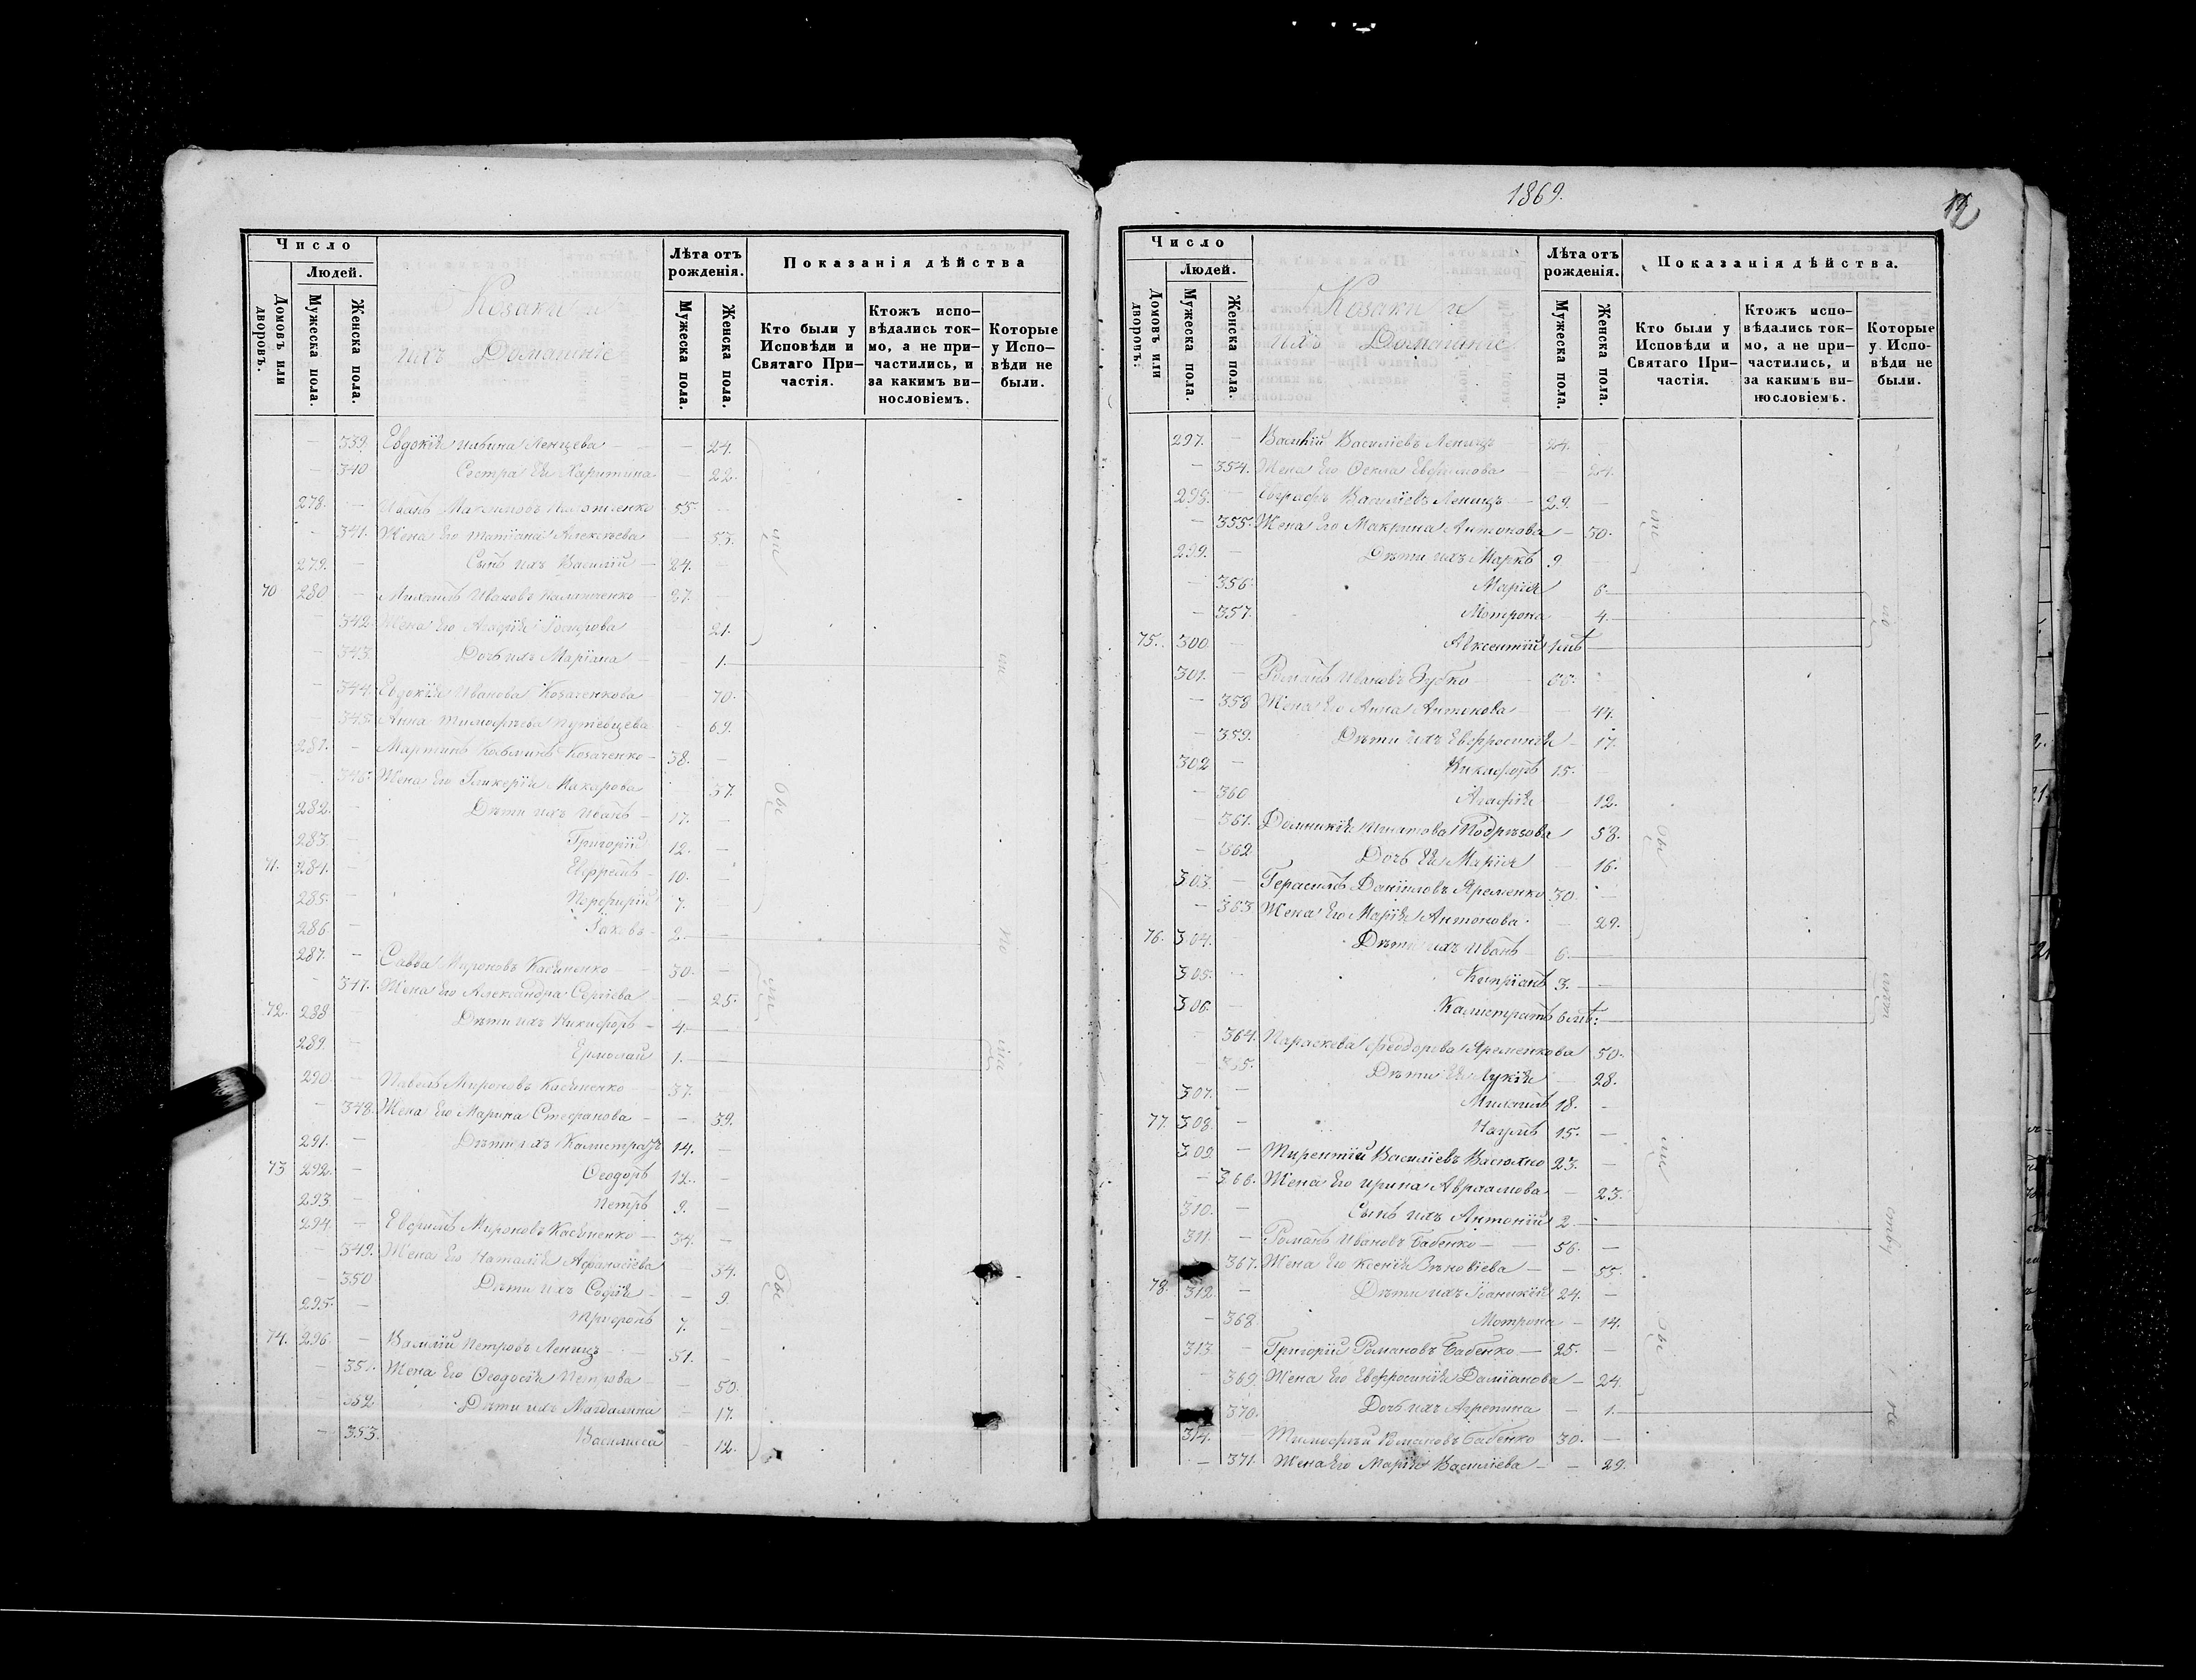 Число
Людей.
Домовъ или дворовъ.
Мужеска пола.
Женска пола.
Козаки и
ихъ Домашніе
Лѣта отъ рожденія.
Мужеска пола.
Женска пола.
Показанія дѣйства
Кто были у Исповѣди и Святаго При-частія.
Ктожъ испо-вѣдались ток-мо, а не при-частились, и за какимъ ви-нословіемъ.
Которые у Испо-вѣди не были.
339. Евдокія Ильина Леницева — 24.
340 Сестра Ея Харитина — 22.
278. — Иванъ Максимовъ 55. —
341. Жена Его Татіана Алексѣева — 53.
279. — Сынъ ихъ Василій — 24. —
70 280 — Михаилъ Ивановъ 27. —
342 Жена Его Агафія Іосифова 21.
343. Дочь ихъ Маріана — 1.
344 Евдокія Иванова Козаченкова 70.
345 Анна Тимофѣева 69.
281. — Мартинъ Козаченко — 38. —
346. Жена Его Гликерія Макарова 37.
282. — Дѣти ихъ Иванъ — 17. —
283. — Григорій 12. —
71. 284. — Ефремъ — 10. —
285. — Порфирій 7. —
286 — Іаковъ — 2. —
287. — Савва Мироновъ 30. —
347. Жена Его Александра Сергіева — 25.
72. 288 — Дѣти ихъ Никифоръ — 4. —
289. — Ермолай 1. —
290. — Павелъ Мироновъ 37. —
348. Жена Его Марина Стефанова — — 39.
291. — Дѣти ихъ Калистратъ 14. —
73 292. — Ѳеодоръ 12. —
293. — Петръ 9. —
294. — Евфимъ Мироновъ 34. —
349. Жена Его Наталія Афанасіева 34.
350 Дѣти ихъ Софія — — 9.
295. — Трифонъ 7. —
74. 296 — Василій Петровъ Леницъ — 51. —
351. Жена Его Ѳеодосія Петрова — 50.
352 Дѣти ихъ Магдалина — 17.
— 353. Василиса — 12.
1869.
12
Число
Людей.
Домовъ или дворовъ.
Мужеска пола.
Женска пола.
Козаки и
ихъ Домашніе
Лѣта отъ рожденія.
Мужеска пола.
Женска пола.
Показанія дѣйства.
Кто были у Исповѣди и Святаго При-частія.
Ктожъ испо-вѣдались ток-мо, а не при-частились, и за какимъ ви-нословіемъ.
Которые у Испо-вѣди не были.
297. — Василій Василіевъ Леницъ 24. —
— 354. Жена Его Ѳекла Евфимова — 24.
298. — Василіевъ Леницъ — 29. —
— 355. Жена Его Макрина Антонова — 30.
299. — Дѣти ихъ Маркъ 9 —
356. Марія 6.
357. Мотрона 4.
75. 300. — Авксентій
301. — Романъ Ивановъ Зубко
— 358 Жена Его Анна Антонова — 44.
— 359. Дѣти ихъ Евфросинія — 17.
302 — Никифоръ 15. —
— 360 Агафія — 12.
— 361. Домникія Игнатова 58.
— 362 Дочь Ея Марія — 16.
303. — Герасимъ Даніиловъ Яременко 30 —
— 363 Жена Его Марія Антонова — 29.
76. 304. — Дѣти ихъ Иванъ — 6.
305. — Кипріанъ 3. —
306. — Калистратъ
364. Параскева Ѳеодорова Яременкова 50.
365. Дѣти Ея Лукія — 28.
307. — Михаилъ 18. —
77. 308. — Наумъ 15. —
309. — Терентій Василіевъ 23. —
— 366. Жена Его Ирина Авраамова — 23.
310. — Сынъ ихъ Антоній 2
311. — Романъ Ивановъ Бабенко — — 56. —
367. Жена Его Ксенія Зѣновіева — — 55.
78. 312 — Дѣти ихъ Іоанникій 24. —
— 368 Мотрона — 14.
313 — Григорій Романовъ Бабенко — 25. —
— 369. Жена Его Евфросинія Даміанова — 24.
370. Дочь ихъ Агрепина — 1.
314. — Тимофѣй Романовъ Бабенко 30. —
— 371. Жена Его Марія Василіева — — 29.